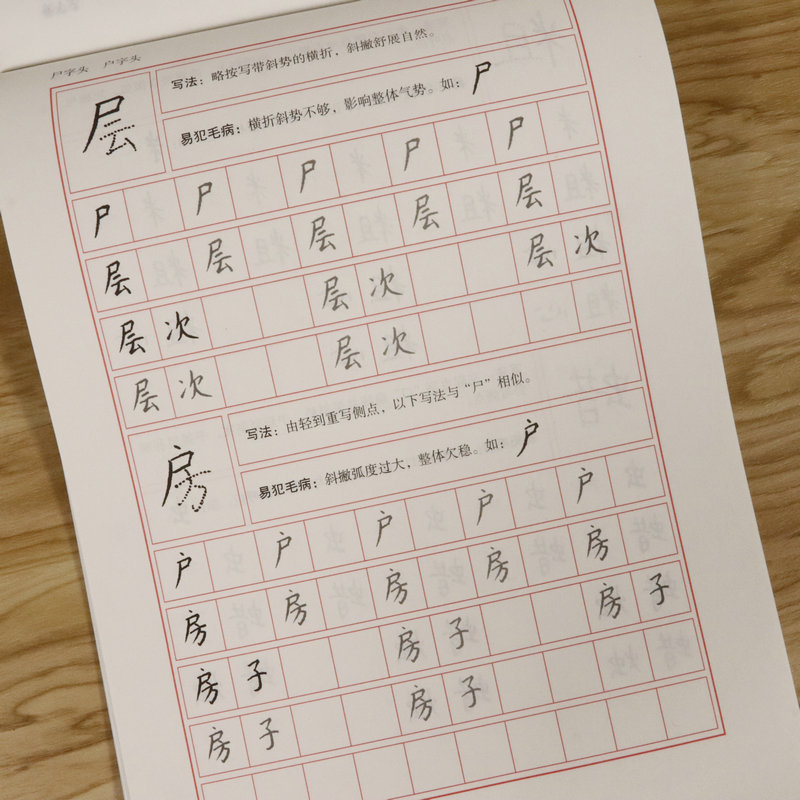 尸字头 户字头
层
写法：略按写带斜势的横折，斜撇舒展自然。
易犯毛病：横折斜势不够，影响整体气势。如：尸
尸 尸 尸 尸 尸
层 层 层 层 层
层次 层次 层次
层次 层次
房
写法：由轻到重写侧点，以下写法与“尸”相似。
易犯毛病：斜撇弧度过大，整体欠稳。如：户
户 户 户 户 户
房 房 房 房 房
房子 房子 房子
房子 房子